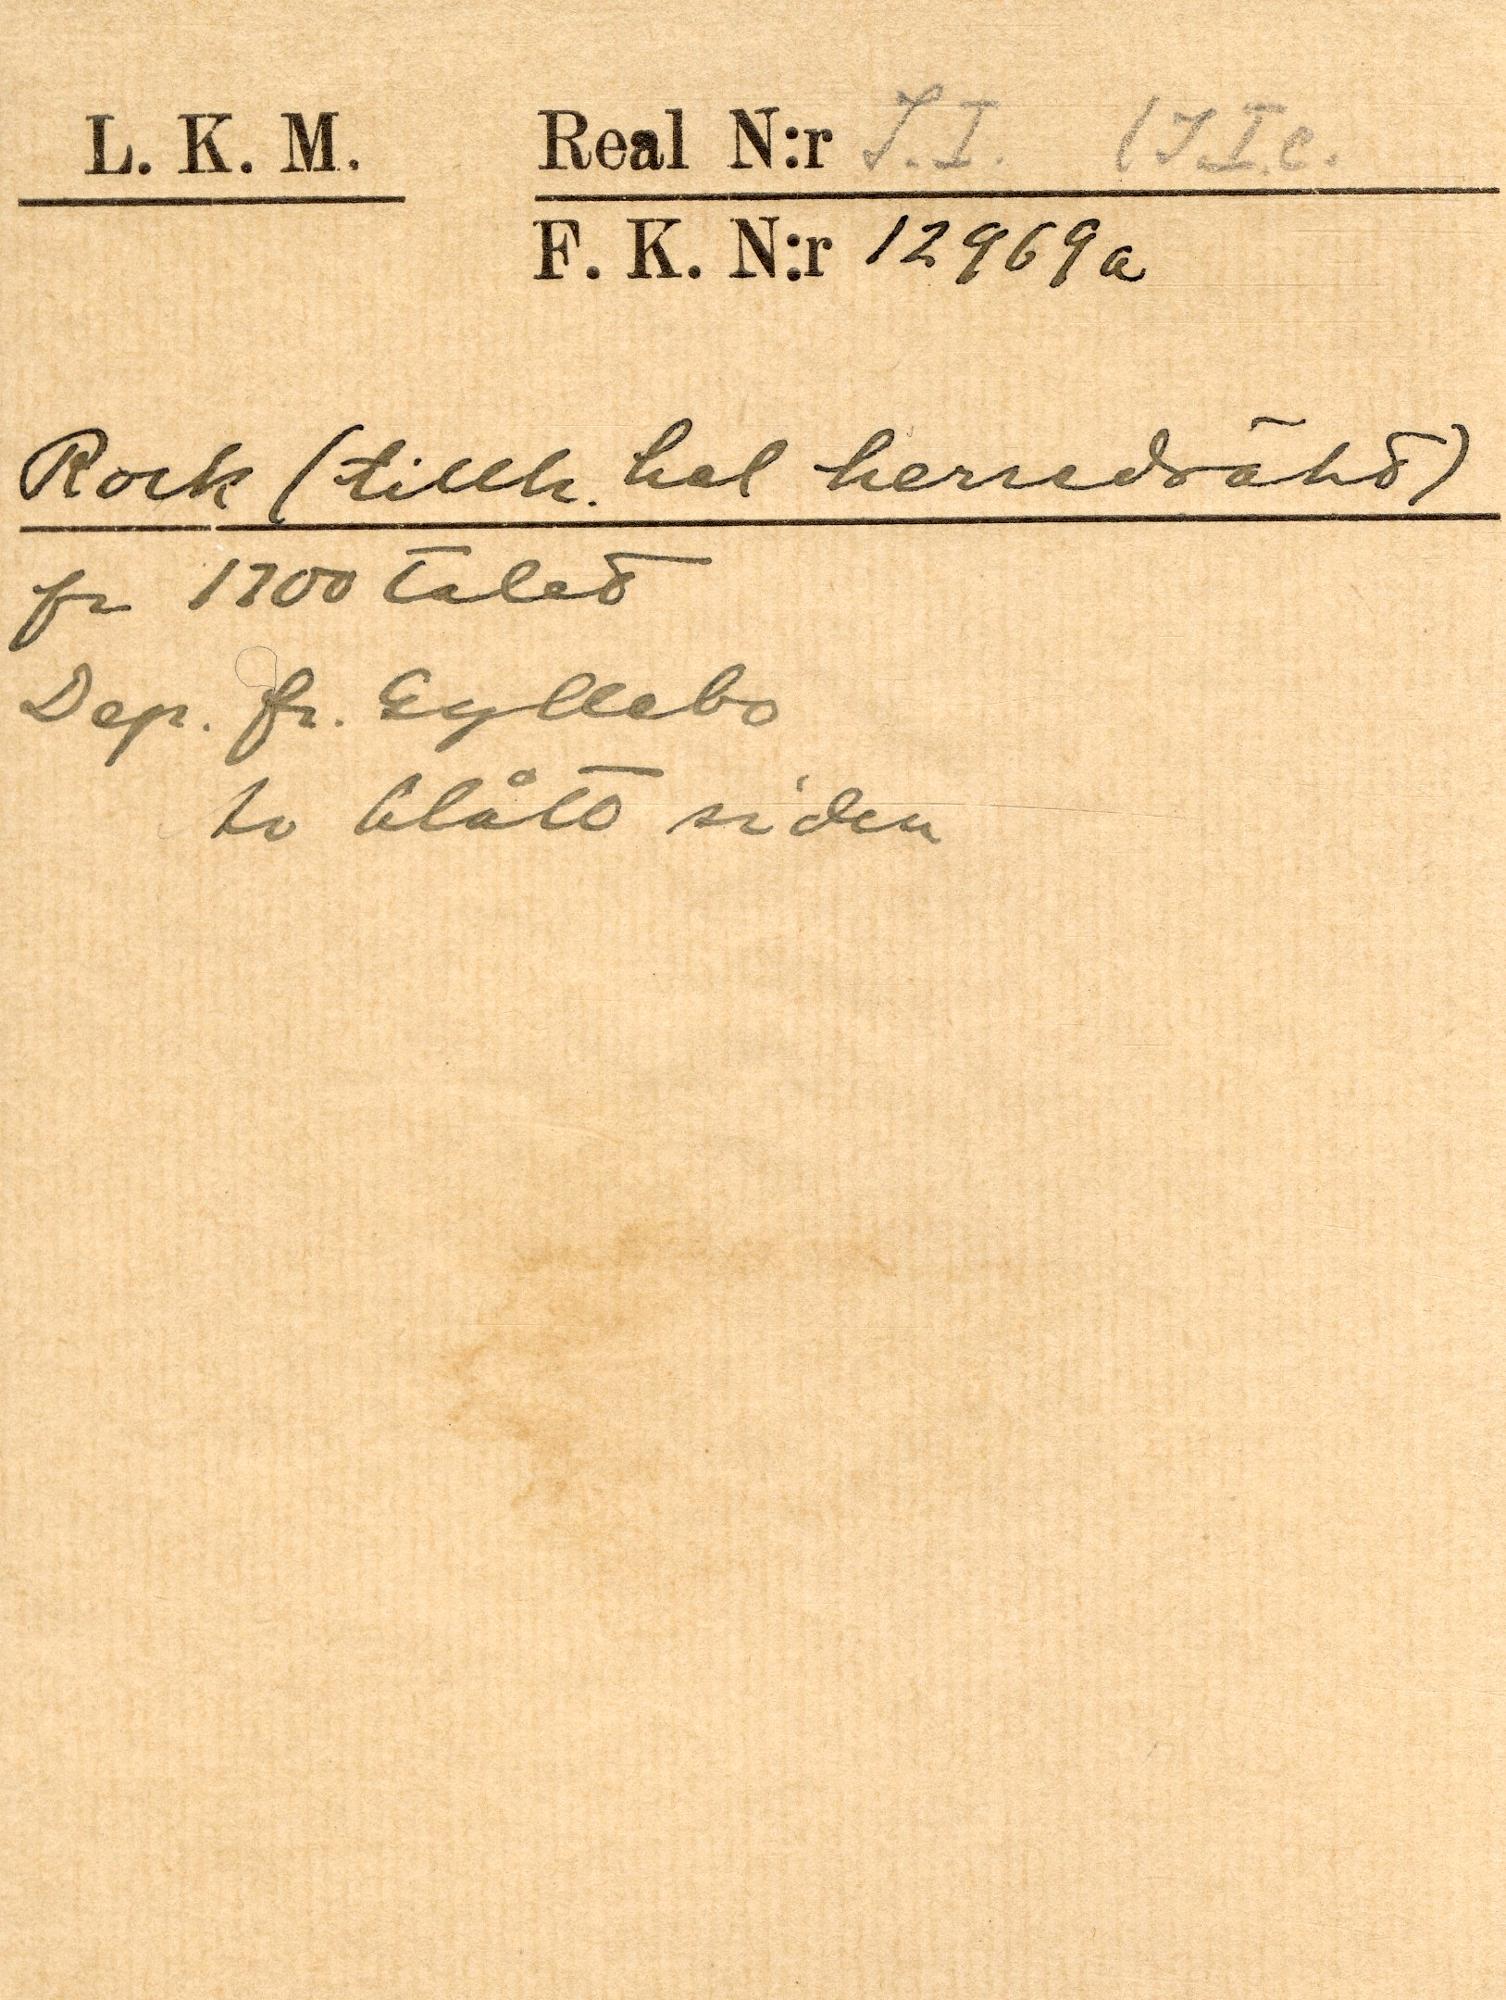 L. K. M.
Real N:r J.I. (J.I.c.
F. K. N:r 12969a
Rock (tillh. hel herredräkt)
fr 1700talet
Dep. fr. Gyllebo
av blått siden